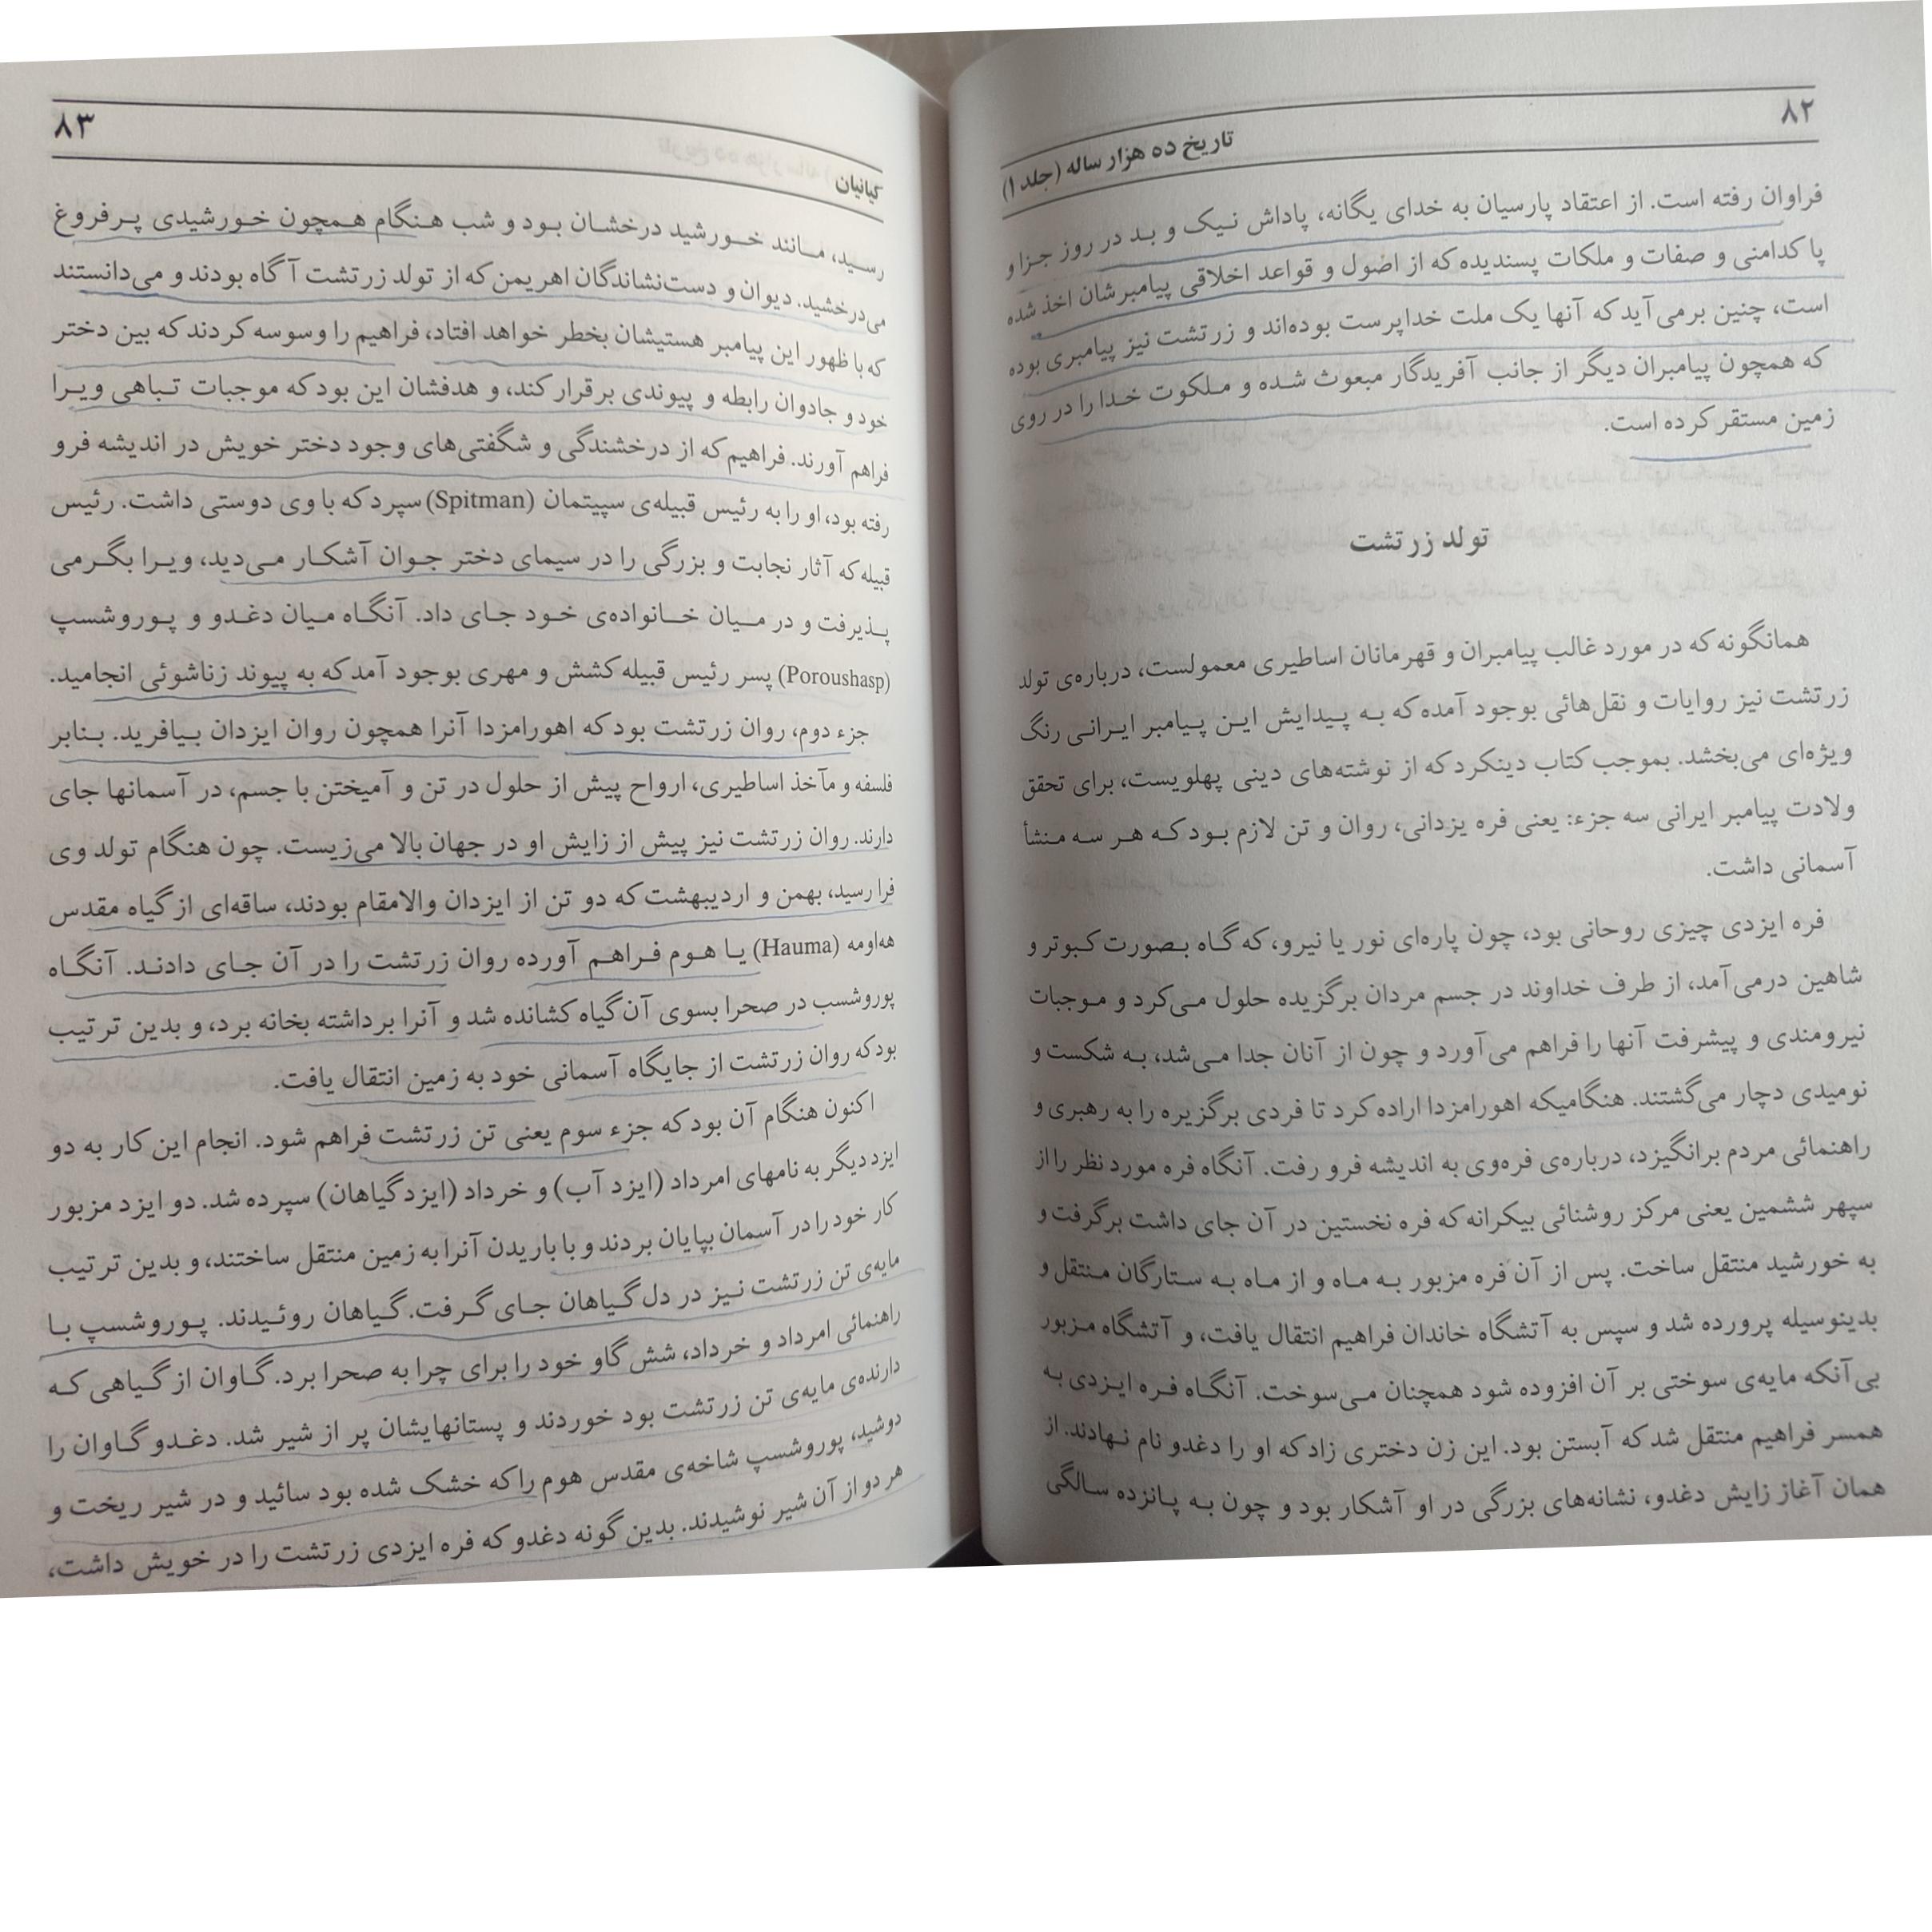 ۸۲
تاریخ ده هزار ساله (جلد ۱)
فراوان رفته است. از اعتقاد پارسیان به خدای یگانه، پاداش نیک و بد در روز جزا و
پاکدامنی و صفات و ملکات پسندیده که از اصول و قواعد اخلاقی پیامبرشان اخذ شده
است، چنین برمی‌آید که آنها یک ملت خداپرست بوده‌اند و زرتشت نیز پیامبری بوده
که همچون پیامبران دیگر از جانب آفریدگار مبعوث شده و ملکوت خدا را در روی
زمین مستقر کرده است.
تولد زرتشت
همانگونه که در مورد غالب پیامبران و قهرمانان اساطیری معمولست، درباره‌ی تولد
زرتشت نیز روایات و نقل‌هائی بوجود آمده که به پیدایش این پیامبر ایرانی رنگ
ویژه‌ای می‌بخشد. بموجب کتاب دینکرد که از نوشته‌های دینی پهلویست، برای تحقق
ولادت پیامبر ایرانی سه جزء: یعنی فره یزدانی، روان و تن لازم بود که هر سه منشأ
آسمانی داشت.
فره ایزدی چیزی روحانی بود، چون پاره‌ای نور یا نیرو، که گاه بصورت کبوتر و
شاهین درمی‌آمد، از طرف خداوند در جسم مردان برگزیده حلول می‌کرد و موجبات
نیرومندی و پیشرفت آنها را فراهم می‌آورد و چون از آنان جدا می‌شد، به شکست و
نومیدی دچار می‌گشتند. هنگامیکه اهورامزدا اراده کرد تا فردی برگزیره را به رهبری و
راهنمائی مردم برانگیزد، درباره‌ی فره‌وی به اندیشه فرو رفت. آنگاه فره مورد نظر را از
سپهر ششمین یعنی مرکز روشنائی بیکرانه که فره نخستین در آن جای داشت برگرفت و
به خورشید منتقل ساخت. پس از آن فره مزبور به ماه و از ماه به ستارگان منتقل و
بدینوسیله پرورده شد و سپس به آتشگاه خاندان فراهیم انتقال یافت، و آتشگاه مزبور
بی‌آنکه مایه‌ی سوختی بر آن افزوده شود همچنان می‌سوخت. آنگاه فره ایزدی به
همسر فراهیم منتقل شد که آبستن بود. این زن دختری زاد که او را دغدو نام نهادند. از
همان آغاز زایش دغدو، نشانه‌های بزرگی در او آشکار بود و چون به پانزده سالگی
۸۳
کیانیان
رسید، مانند خورشید درخشان بود و شب هنگام همچون خورشیدی پرفروغ
می‌درخشید. دیوان و دست‌نشاندگان اهریمن که از تولد زرتشت آگاه بودند و می‌دانستند
که با ظهور این پیامبر هستیشان بخطر خواهد افتاد، فراهیم را وسوسه کردند که بین دختر
خود و جادوان رابطه و پیوندی برقرار کند، و هدفشان این بود که موجبات تباهی ویرا
فراهم آورند. فراهیم که از درخشندگی و شگفتی‌های وجود دختر خویش در اندیشه فرو
رفته بود، او را به رئیس قبیله‌ی سپیتمان (Spitman) سپرد که با وی دوستی داشت. رئیس
قبیله که آثار نجابت و بزرگی را در سیمای دختر جوان آشکار می‌دید، ویرا بگرمی
پذیرفت و در میان خانواده‌ی خود جای داد. آنگاه میان دغدو و پوروشسپ
(Poroushasp) پسر رئیس قبیله کشش و مهری بوجود آمد که به پیوند زناشوئی انجامید.
جزء دوم، روان زرتشت بود که اهورامزدا آنرا همچون روان ایزدان بیافرید. بنابر
فلسفه و مآخذ اساطیری، ارواح پیش از حلول در تن و آمیختن با جسم، در آسمانها جای
دارند. روان زرتشت نیز پیش از زایش او در جهان بالا می‌زیست. چون هنگام تولد وی
فرا رسید، بهمن و اردیبهشت که دو تن از ایزدان والامقام بودند، ساقه‌ای از گیاه مقدس
هه‌اومه (Hauma) یا هوم فراهم آورده روان زرتشت را در آن جای دادند. آنگاه
پوروشسب در صحرا بسوی آن گیاه کشانده شد و آنرا برداشته بخانه برد، و بدین ترتیب
بود که روان زرتشت از جایگاه آسمانی خود به زمین انتقال یافت.
اکنون هنگام آن بود که جزء سوم یعنی تن زرتشت فراهم شود. انجام این کار به دو
ایزد دیگر به نامهای امرداد (ایزد آب) و خرداد (ایزد گیاهان) سپرده شد. دو ایزد مزبور
کار خود را در آسمان بپایان بردند و با باریدن آنرا به زمین منتقل ساختند، و بدین ترتیب
مایه‌ی تن زرتشت نیز در دل گیاهان جای گرفت. گیاهان روئیدند. پوروشسپ با
راهنمائی امرداد و خرداد، شش گاو خود را برای چرا به صحرا برد. گاوان از گیاهی که
دارنده‌ی مایه‌ی تن زرتشت بود خوردند و پستانهایشان پر از شیر شد. دغدو گاوان را
دوشید، پوروشسپ شاخه‌ی مقدس هوم را که خشک شده بود سائید و در شیر ریخت و
هر دو از آن شیر نوشیدند. بدین گونه دغدو که فره ایزدی زرتشت را در خویش داشت،